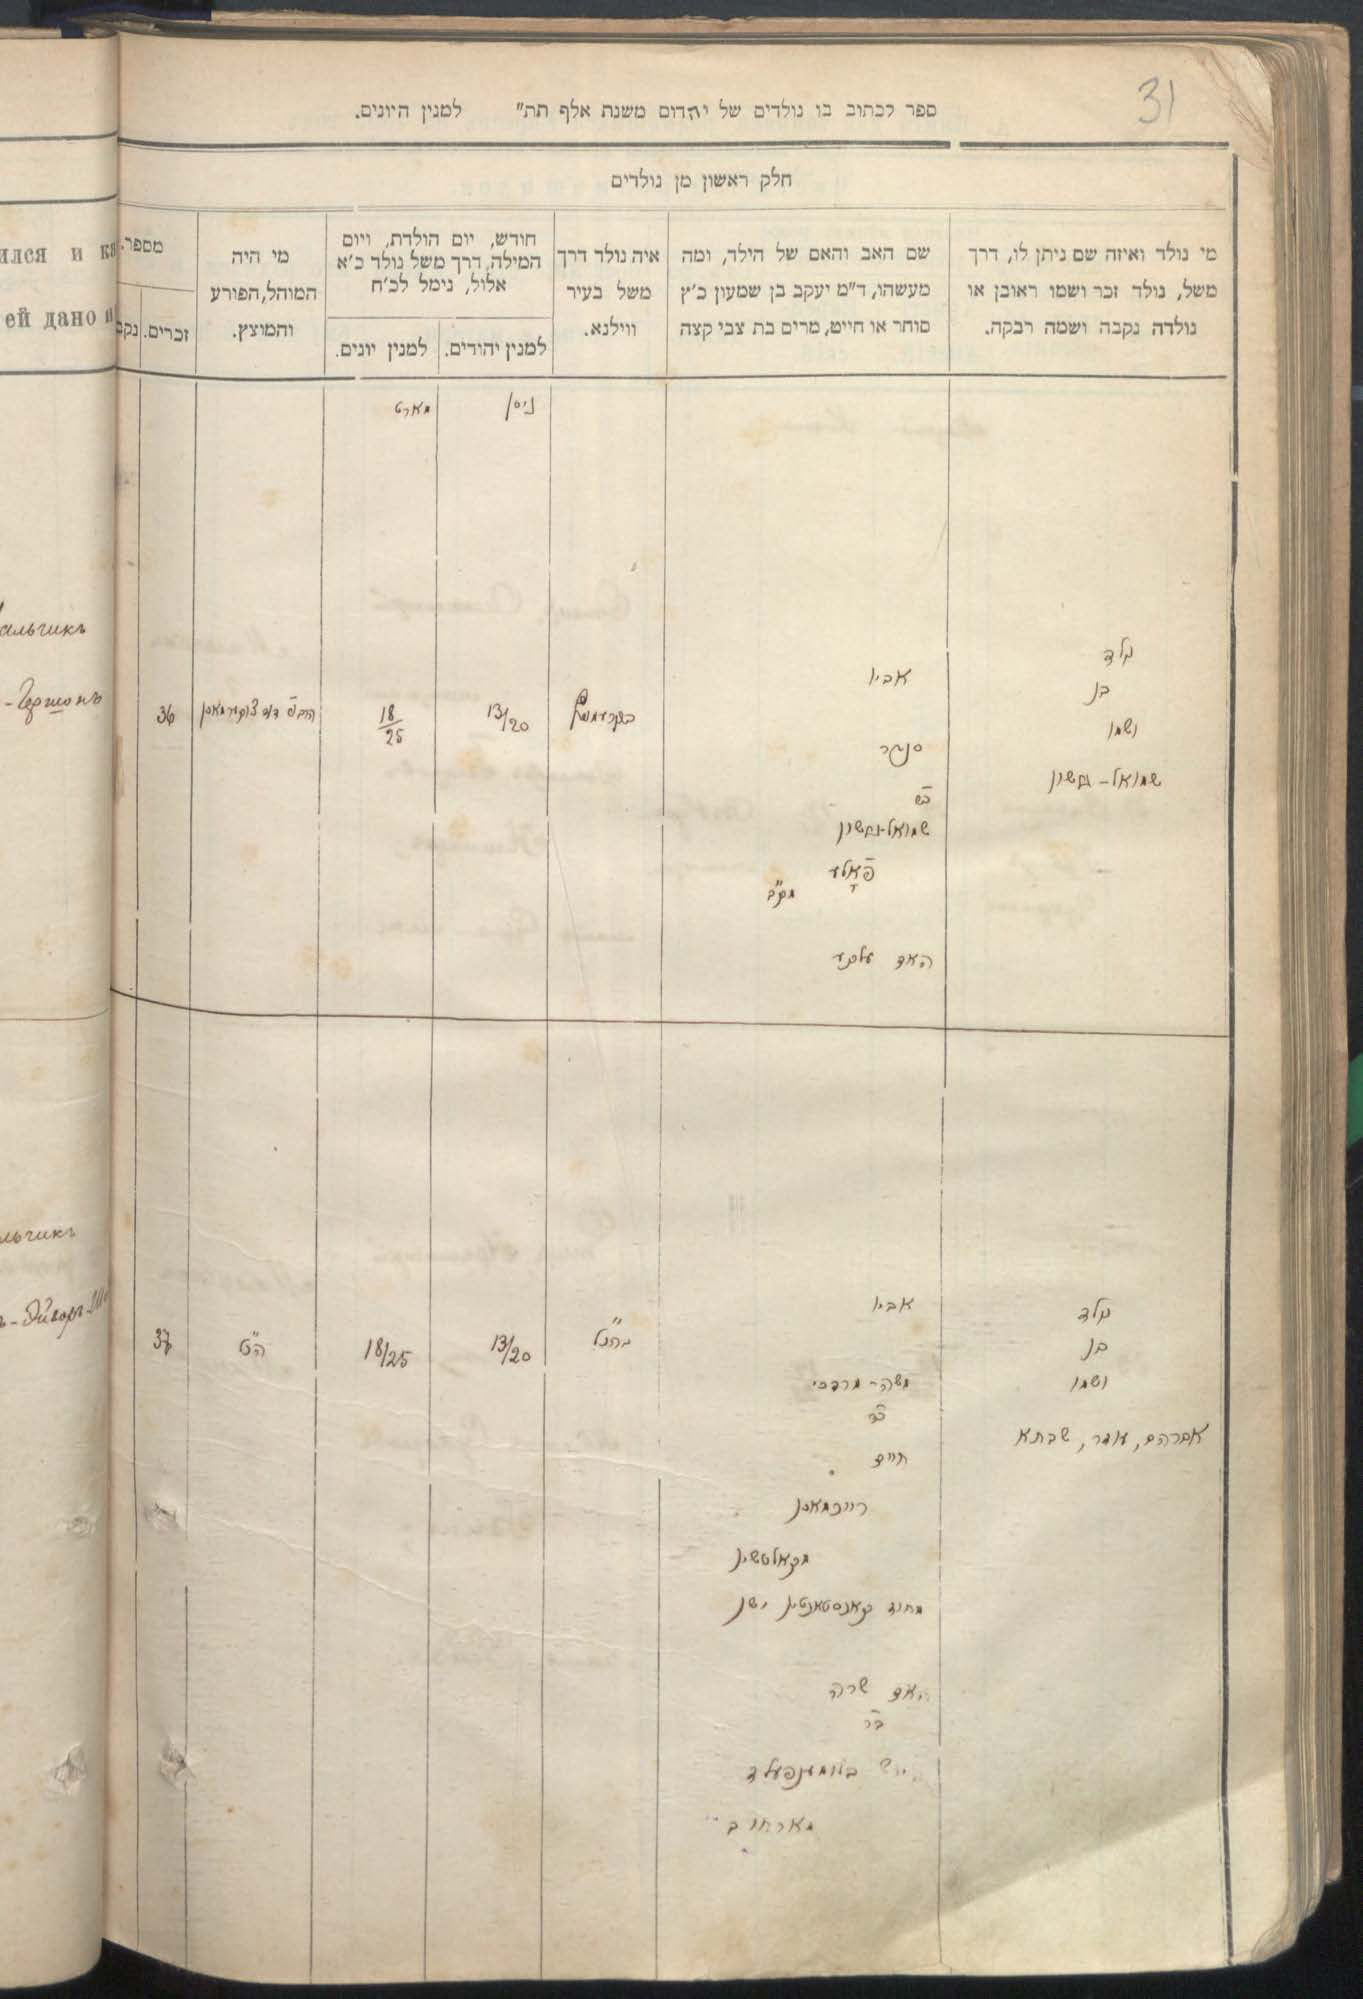 31
ספר לכתוב בו נולדים של יהדום משנת אלף תת" למנין היונים.
חלק ראשון מן נולדים
מי נולד ואיזה שם ניתן לו, דרך
משל, נולד זכר ושמו ראובן או
נולדה נקבה ושמה רבקה.
שם האב והאם של הילד, ומה
מעשהו, ד"מ יעקב בן שמעון כ"ץ
סוחר או חייט, מרים בת צבי קצה
איה נולד דרך
משל בעיר
ווילנא.
חודש, יום הולדת, ויום
המילה, דרך משל נולד כ"א
אלול, נימל לכ"ח
למנין יהודים.
למנין יונים.
מי היה
המוהל, הפורע
והמוצץ.
מספר.
זכרים.
נקב
ился и ка
ей дано и
ניסן
מארט
ילד
בן
ושמו
שמואל-גרשון
אביו
סנדר
שמואל-גרשון
האם
13/20
18/25
36
альчикъ
-Гершонъ
ילד
בן
ושמו
אברהם, אזר, שבתא
אביו
משה-מרדכי
חיים
רייכמאן
מקאלטשין
מחוז קאנסטאנטין ישן
האם שרה
בת
בלומענפעלד
בהנ"ל
13/20
18/25
הנ"ל
37
льчикъ